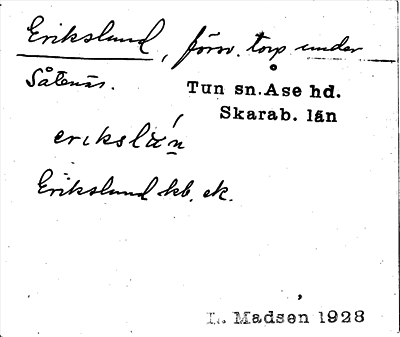 Erikslund, försv. torp under
Såtenäs.
Tun sn. Åse hd.
Skarab. län
Erikslund kb. ek.
L. Madsen 1928